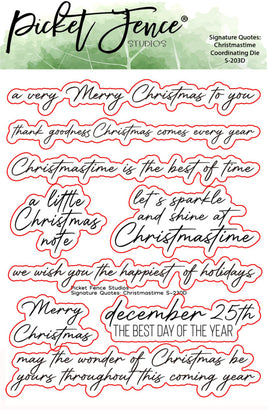 Picket Fence®
STUDIOS
Signature Quotes:
Christmastime
Coordinating Die
S-203D
a very Merry Christmas to you
thank goodness Christmas comes every year
Christmastime is the best of time
a little
Christmas
note
let's sparkle
and shine at
Christmastime
we wish you the happiest of holidays
Picket Fence Studios
Signature Quotes: Christmastime S-203D
Merry
Christmas
december 25th
THE BEST DAY OF THE YEAR
may the wonder of Christmas be
yours throughout this coming year